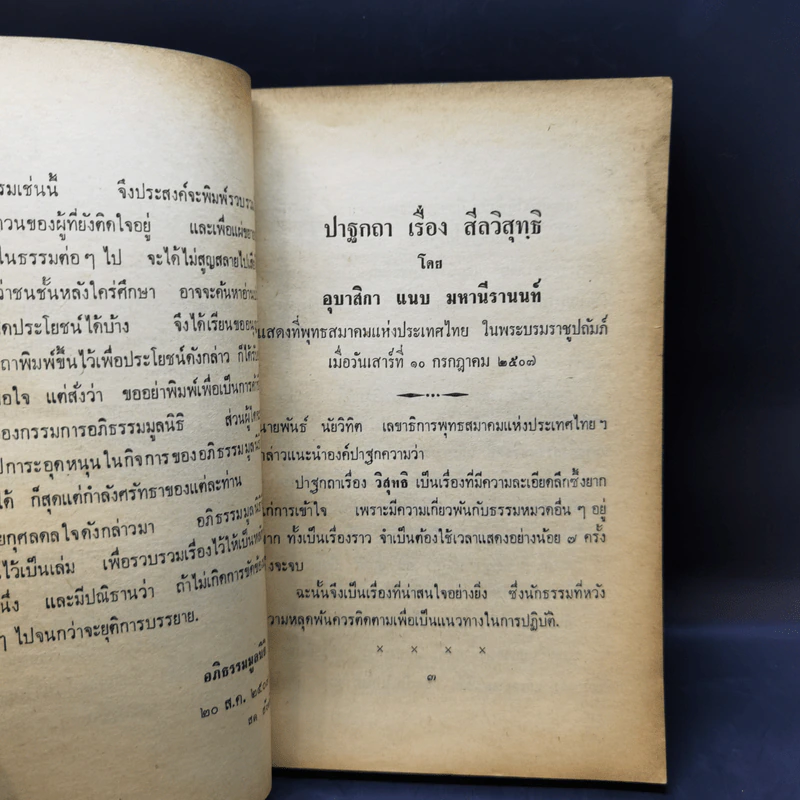 รมเช่นนี้ จึงประสงค์จะพิมพ์รวบรวม
ของผู้ที่ยังติดใจอยู่ และเพื่อแผ่
ในธรรมต่อๆ ไป จะได้ไม่สูญสลายไป
ว่าชนชั้นหลังใคร่ศึกษา อาจจะค้นหาอ่าน
ประโยชน์ได้บ้าง จึงได้เรียนขอ
พิมพ์ขึ้นไว้เพื่อประโยชน์ดังกล่าว ก็ได้
แต่สั่งว่า ขออย่าพิมพ์เพื่อเป็นการ
องกรรมการอภิธรรมมูลนิธิ ส่วน
การะอุดหนุนในกิจการของอภิธรรม
ได้ ก็สุดแต่กำลังศรัทธาของแต่ละท่าน
กุศลดลใจดังกล่าวมา อภิธรรมมูลนิธิ
ไว้เป็นเล่ม เพื่อรวบรวมเรื่องไว้ให้เป็น
นึ่ง และมีปณิธานว่า ถ้าไม่เกิดการ
ๆ ไปจนกว่าจะยุติการบรรยาย.
อภิธรรมมูลนิธิ
๒๐ ส.ค.
ปาฐกถา เรื่อง สีลวิสุทฺธิ
โดย
อุบาสิกา แนบ มหานีรานนท์
แสดงที่พุทธสมาคมแห่งประเทศไทย ในพระบรมราชูปถัมภ์
เมื่อวันเสาร์ที่ ๑๐ กรกฎาคม ๒๕๐๗
นายพันธ์ นัยวิทิต เลขาธิการพุทธสมาคมแห่งประเทศไทย ฯ
กล่าวแนะนำองค์ปาฐกความว่า
ปาฐกถาเรื่อง วิสุทธิ เป็นเรื่องที่มีความละเอียดลึกซึ้งยาก
แก่การเข้าใจ เพราะมีความเกี่ยวพันกับธรรมหมวดอื่น ๆ อยู่
มาก ทั้งเป็นเรื่องราว จำเป็นต้องใช้เวลาแสดงอย่างน้อย ๗ ครั้ง
จึงจะจบ
ฉะนั้นจึงเป็นเรื่องที่น่าสนใจอย่างยิ่ง ซึ่งนักธรรมที่หวัง
ความหลุดพ้นควรติดตามเพื่อเป็นแนวทางในการปฏิบัติ.
× × × ×
๓